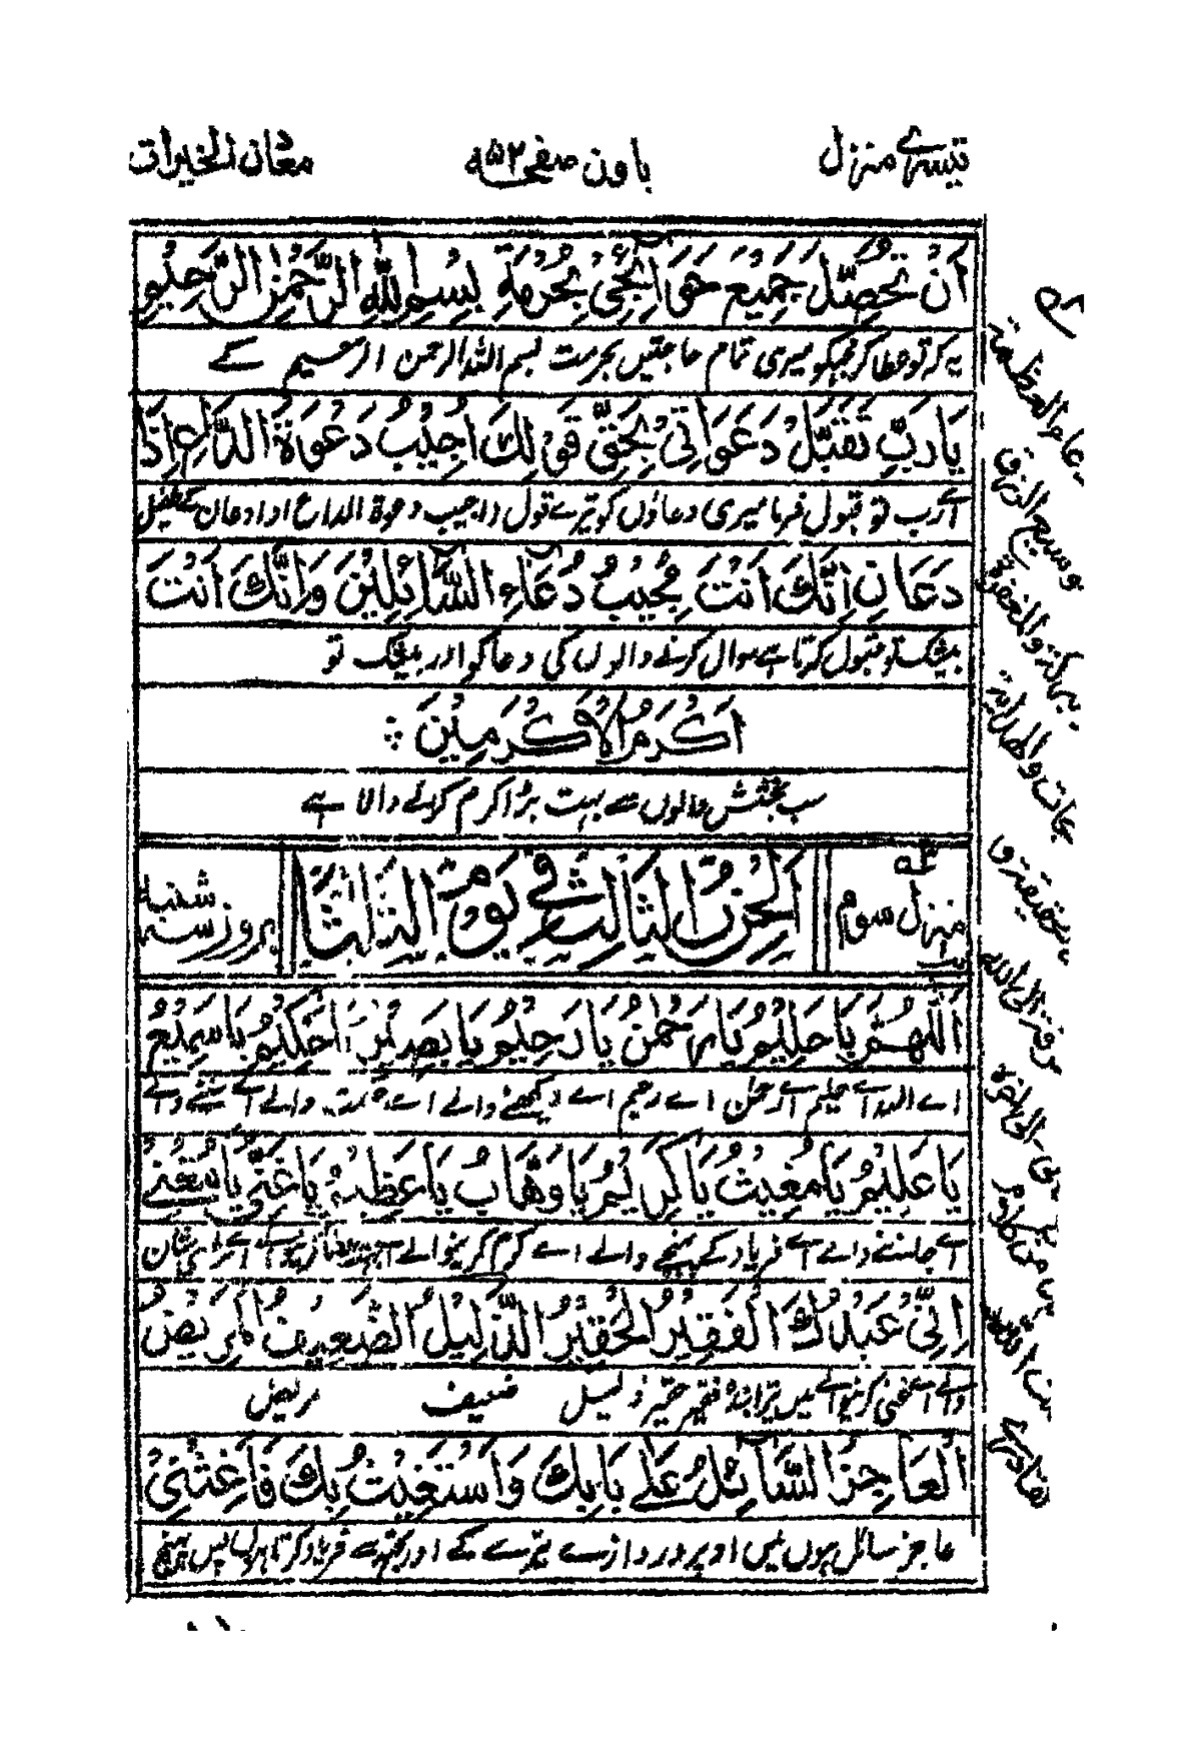 تیسرے منزل
باون صفحہ ۵۲
معان الخیرات
اَنْ تُحَصِّلَ جَمِيْعَ حَوَآئِجِىْ بِحُرْمَةِ بِسْمِ اللّٰهِ الرَّحْمٰنِ الرَّحِيْمِ
یہ کر تو عطا کر مجہکو میری تمام حاجتیں بحرمت بسم اللہ الرحمن الرحیم کے
يَارَبِّ تَقَبَّلْ دَعَوَاتِىْ بِحَقِّ قَوْلِكَ اُجِيْبُ دَعْوَةَ الدَّاعِ اِذَا
اے رب تو قبول فرما میری دعاؤں کو تیرے قول اجیب دعوۃ الداع اذا دعان کے طفیل
دَعَانِ اِنَّكَ اَنْتَ مُجِيْبُ دُعَآءِ السَّآئِلِيْنَ وَاِنَّكَ اَنْتَ
بیشک تو قبول کرتا ہے سوال کرنے والوں کی دعا کو اور بیشک تو
اَكْرَمُ الْاَكْرَمِيْنَ
سب بخشش والوں سے بہت بڑا کرم کرنے والا ہے
منزل سوم
اَلْحِزْبُ الثَّالِثُ فِىْ يَوْمِ الثَّلٰثَا
بروز سہ شنبہ
اَللّٰهُمَّ يَا حَلِيْمُ يَا رَحْمٰنُ يَا رَحِيْمُ يَا بَصِيْرُ يَا حَكِيْمُ يَا سَمِيْعُ
اے اللہ اے حلیم اے رحمن اے رحیم اے دیکھنے والے اے والے اے سننے والے
يَا عَلِيْمُ يَا مُغِيْثُ يَا كَرِيْمُ يَا وَهَّابُ يَا عَظِيْمُ يَا غَنِىُّ يَا مُغْنِىْ
اے جاننے والے اے فریاد کے پہنچنے والے اے کرم کرنیوالے شان
اِنِّىْ عَبْدُكَ الْفَقِيْرُ الْحَقِيْرُ الذَّلِيْلُ الضَّعِيْفُ الْمَرِيْضُ
والے اے غنی کرنیوالے میں تیرا بندہ فقیر حقیر ذلیل ضعیف مریض
اَلْعَاجِزُ السَّآئِلُ عَلٰى بَابِكَ وَاَسْتَغِيْثُ بِكَ فَاَغِثْنِىْ
عاجز سائل ہوں میں اوپر دروازے تیرے کے اور تجہسے فریاد کرتا ہوں پس پہنچ
العظمة
وسيع الرزق
والمغفرة
والهداية
الى الله